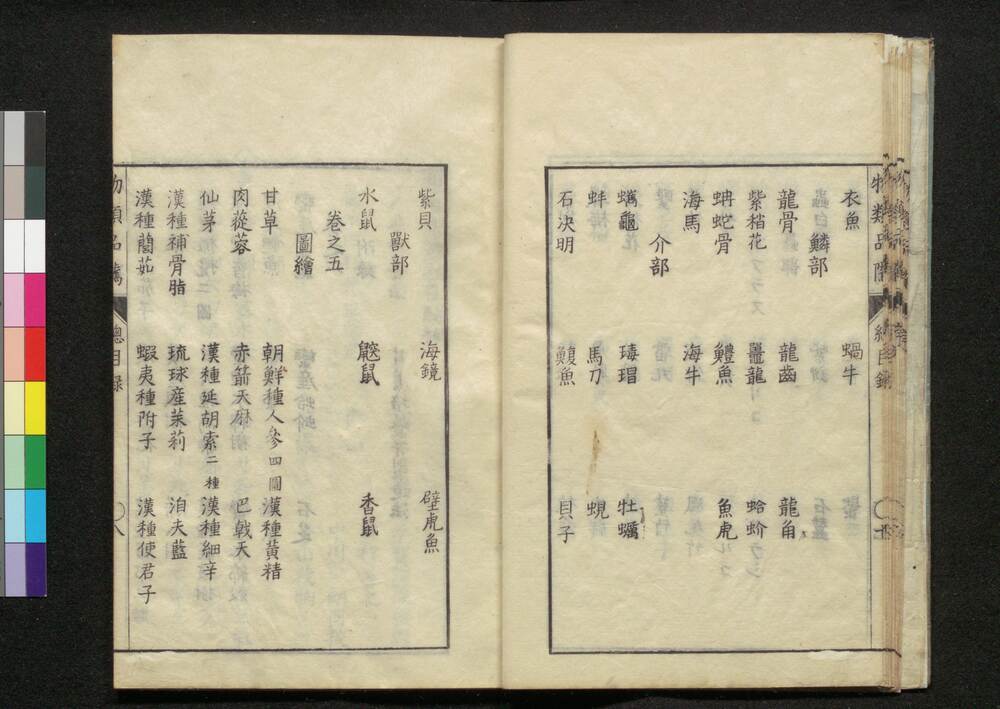 衣魚　蝸牛
鱗部
龍骨　龍齒　龍角
紫稍花　鼉龍　蛤蚧
蚺蛇骨　鱧魚　魚虎
海馬　海牛
介部
蠵龜　瑇瑁　牡蠣
蚌　馬刀　蜆
石決明　鱝魚　貝子
紫貝　海鏡　壁虎魚
獸部
水鼠　鼴鼠　香鼠
卷之五
圖繪
甘草　朝鮮種人參四圖　漢種黃精
肉蓯蓉　赤箭天麻　巴戟天
仙茅　漢種延胡索二種　漢種細辛
漢種補骨脂　琉球産茉莉　洎夫藍
漢種䕡茹　蝦夷種附子　漢種使君子
總目錄
八